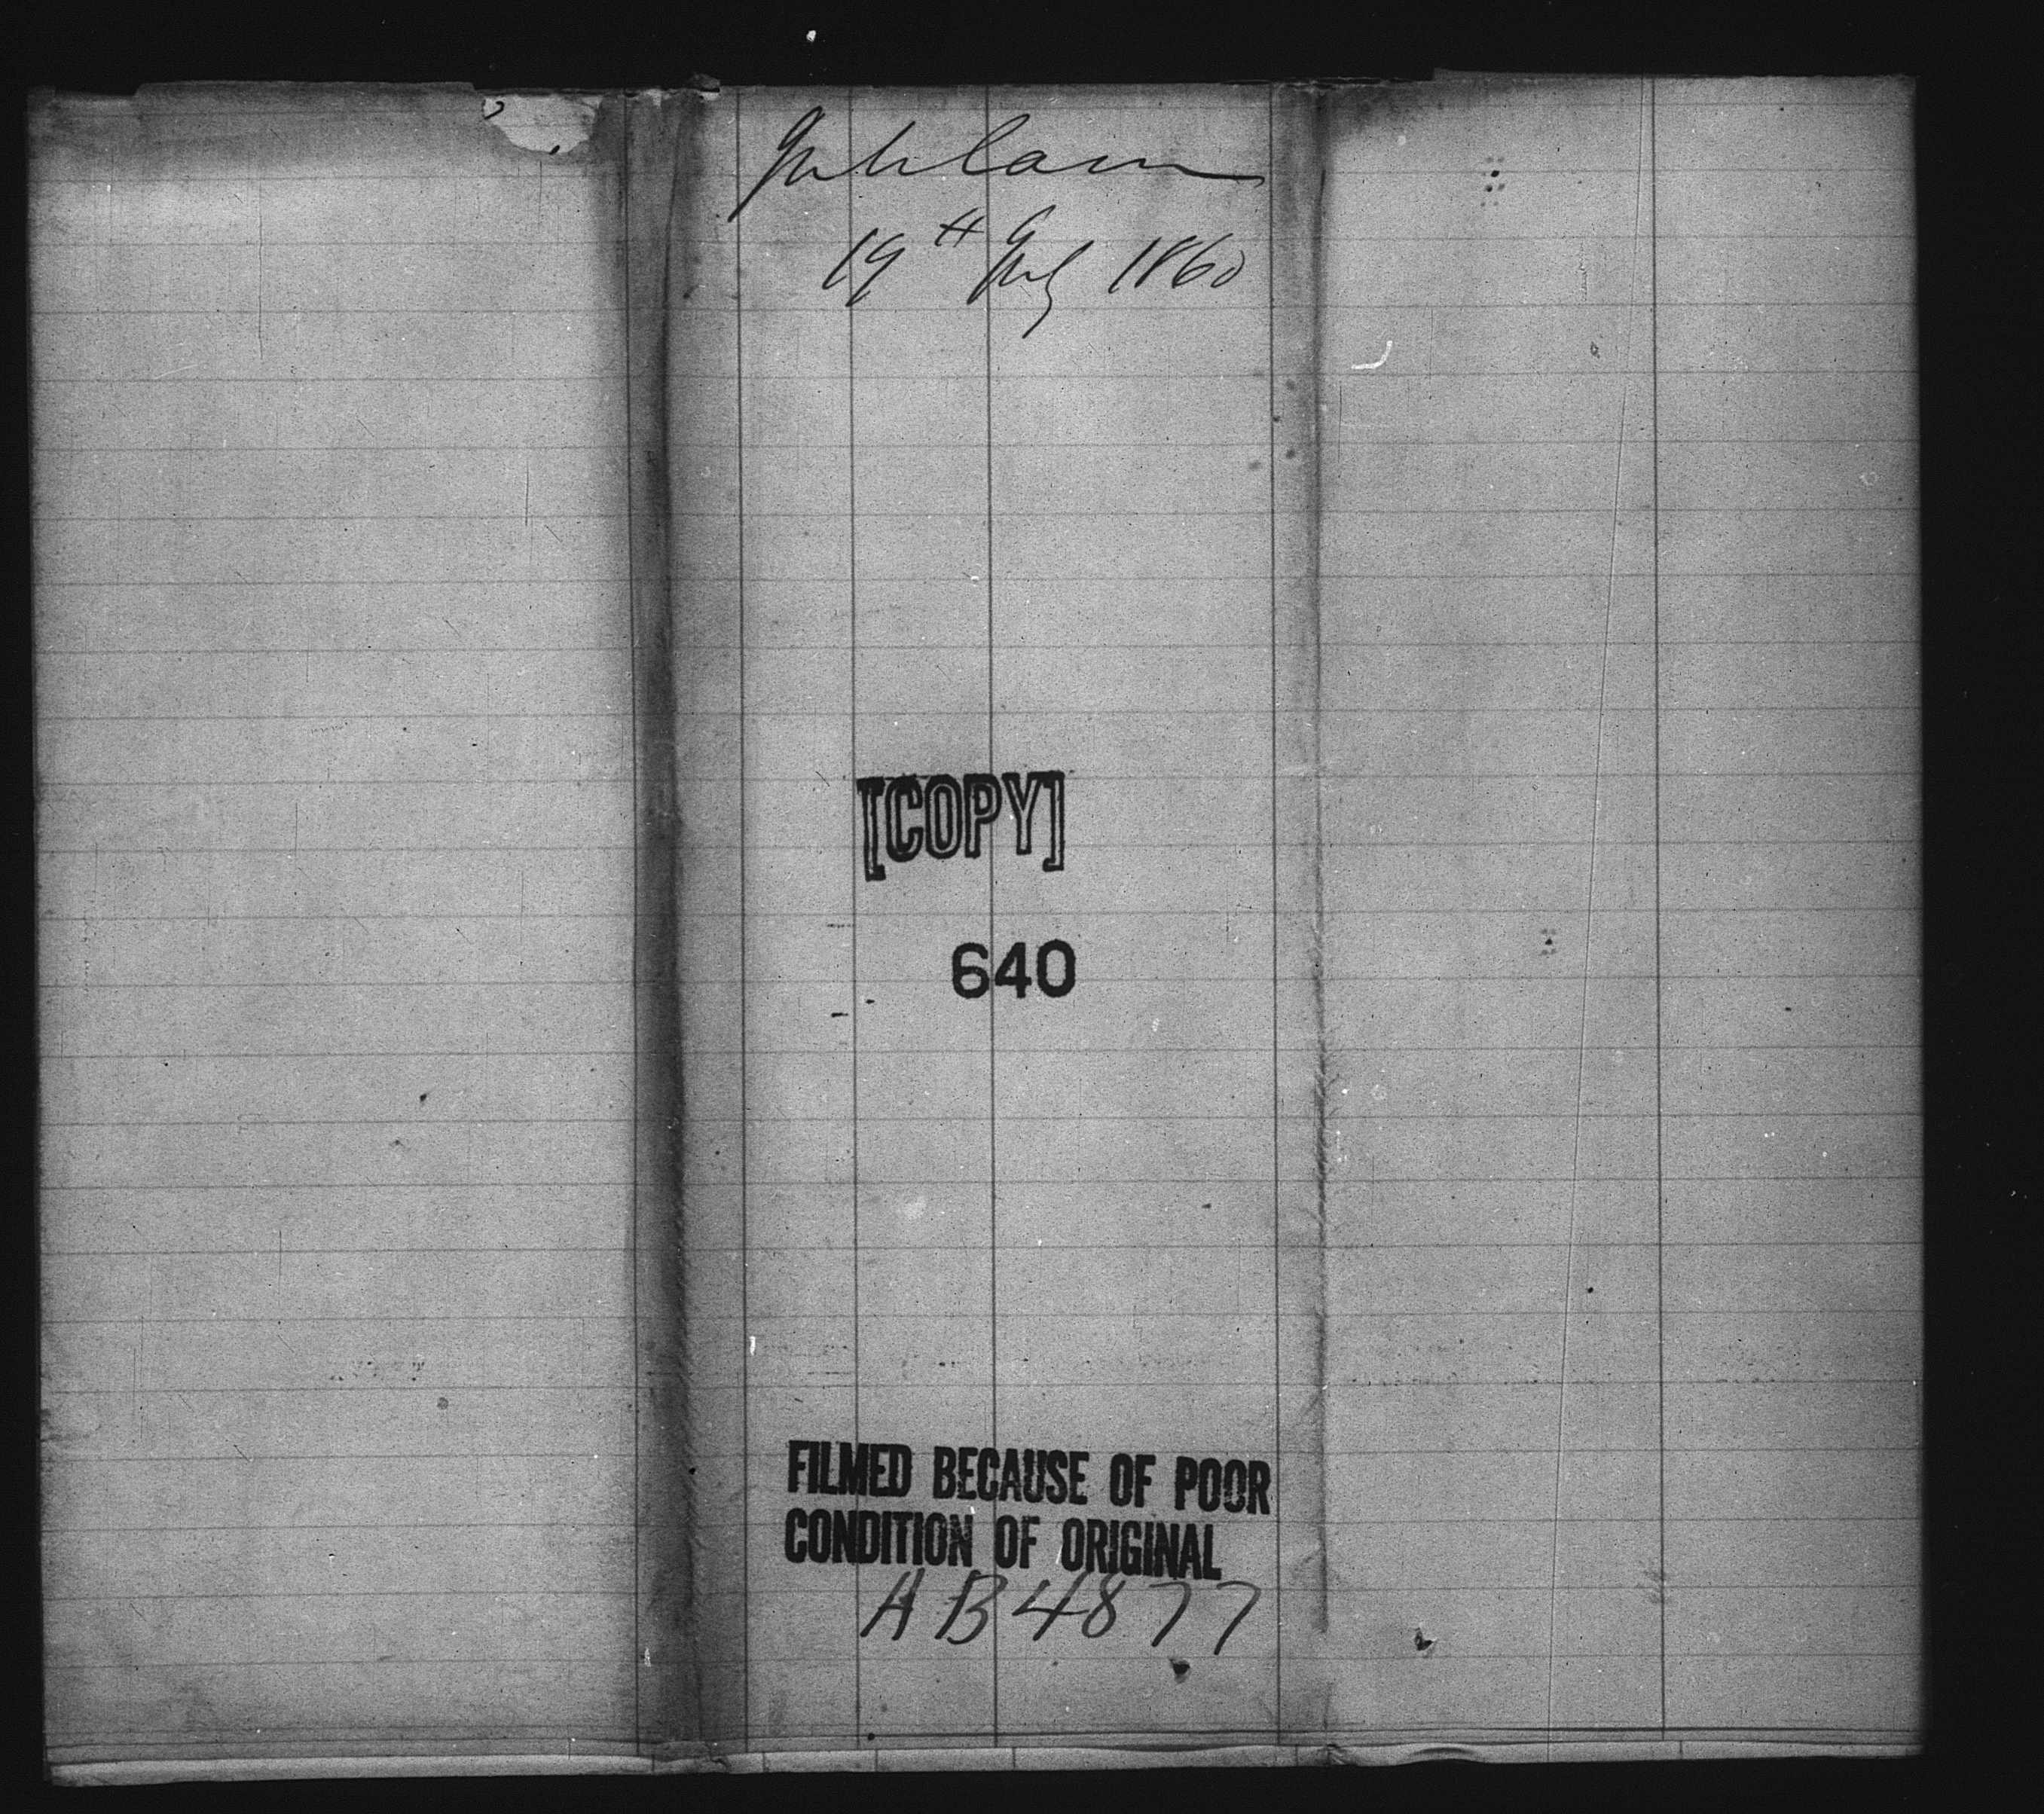 19th July 1860
[COPY]
640
FILMED BECAUSE OF POOR
CONDITION OF ORIGINAL
AB4877